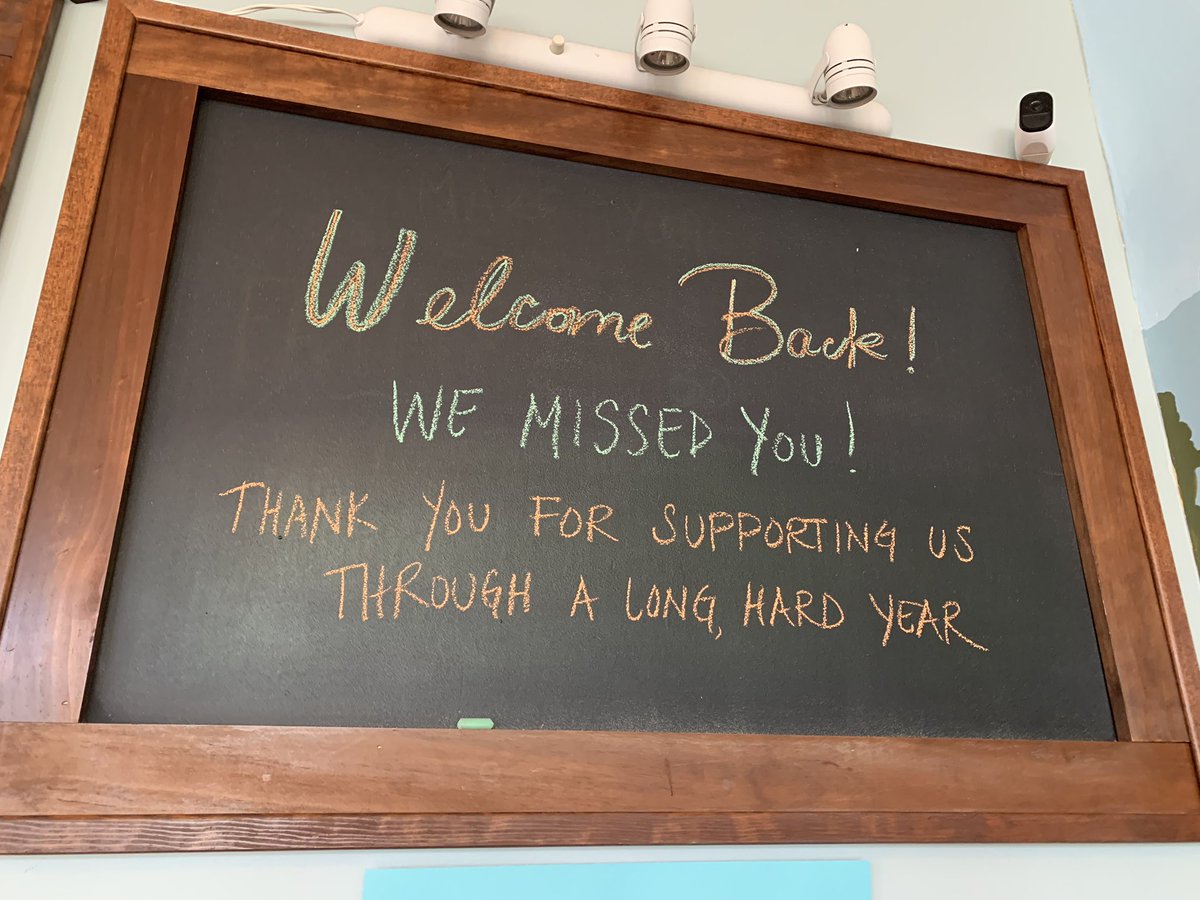 Welcome Back!
WE MISSED YOU!
THANK YOU FOR SUPPORTING US
THROUGH A LONG, HARD YEAR